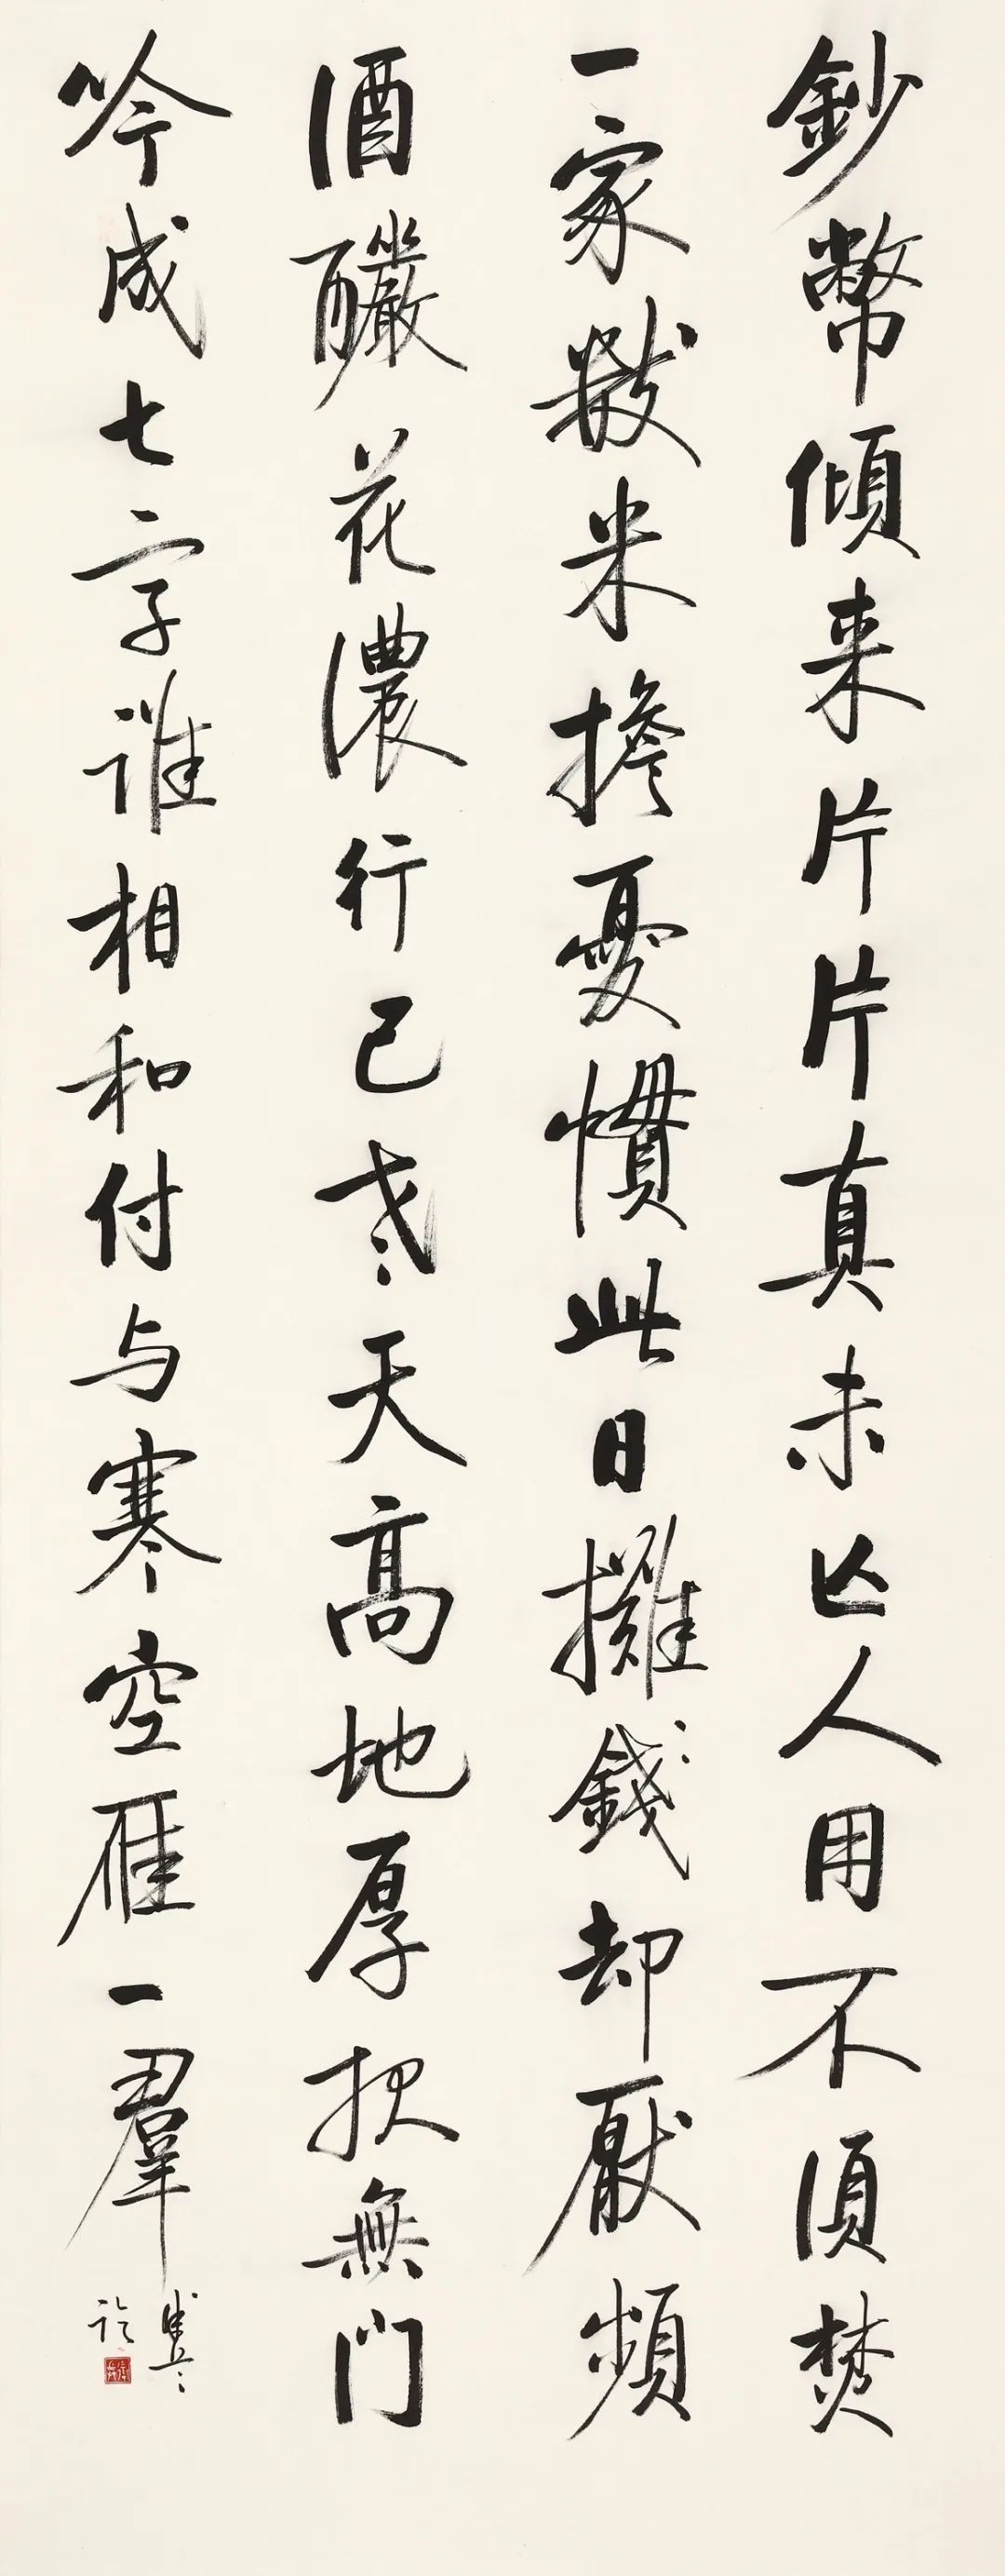 鈔幣傾来片片真未亡人用不須焚
一家數米擔憂慣此日攤錢却厭頻
酒釅花濃行已老天高地厚报無门
吟成七字誰相和付与寒空雁一羣